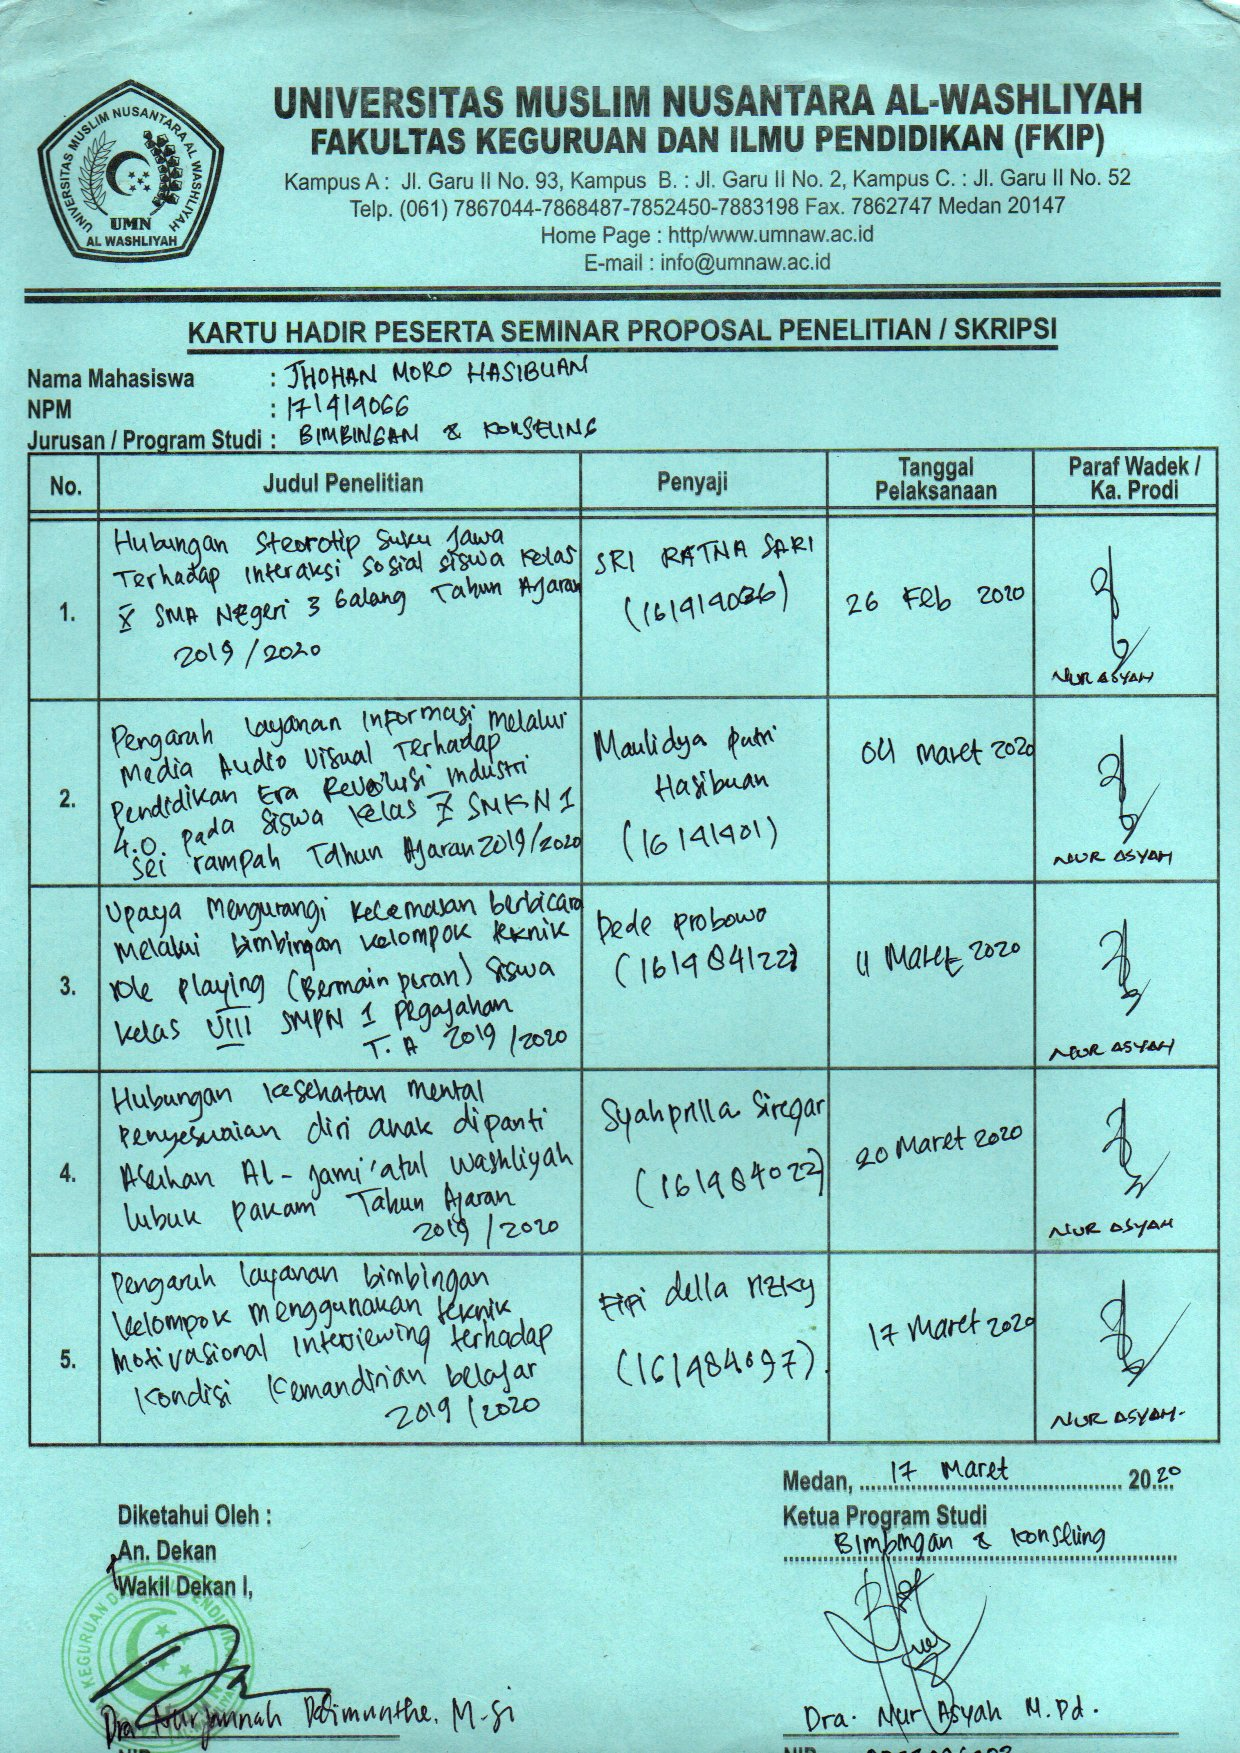 UNIVERSITAS MUSLIM NUSANTARA AL WASHLIYAH
UMN
AL WASHLIYAH
UNIVERSITAS MUSLIM NUSANTARA AL-WASHLIYAH
FAKULTAS KEGURUAN DAN ILMU PENDIDIKAN (FKIP)
Kampus A : Jl. Garu II No. 93, Kampus B. : Jl. Garu II No. 2, Kampus C. : Jl. Garu II No. 52
Telp. (061) 7867044-7868487-7852450-7883198 Fax. 7862747 Medan 20147
Home Page : http/www.umnaw.ac.id
E-mail : info@umnaw.ac.id
KARTU HADIR PESERTA SEMINAR PROPOSAL PENELITIAN / SKRIPSI
Nama Mahasiswa : JHOHAN MORO HASIBUAN
NPM : 171414066
Jurusan / Program Studi : BIMBINGAN & KONSELING
No. Judul Penelitian Penyaji Tanggal Pelaksanaan Paraf Wadek / Ka. Prodi
1.
Hubungan Steorotip Suku Jawa
Terhadap interaksi sosial siswa kelas
X SMA NEgeri 3 Galang Tahun Ajaran
2019/2020
SRI RATNA SARI
(161414036)
26 Feb 2020
NUR ASYAH
2.
Pengaruh layanan informasi melalui
Media Audio Visual Terhadap
Pendidikan Era Revolusi industri
4.0. pada siswa kelas X SMKN 1
sei rampah Tahun Ajaran 2019/2020
Maulidya putri
Hasibuan
(16141401)
04 maret 2020
NUR ASYAH
3.
Upaya Mengurangi kecemasan berbicara
melalui bimbingan kelompok teknik
role playing (Bermain peran) Siswa
kelas VIII SMPN 1 pegajahan
T.A 2019/2020
Dede probowo
(161484122)
11 Maret 2020
NUR ASYAH
4.
Hubungan kesehatan mental
penyesuaian diri anak dipanti
Asuhan AL-Jami'atul washliyah
lubuk pakam Tahun Ajaran
2019/2020
Syahprilla Siregar
(161484022)
20 Maret 2020
NUR ASYAH
5.
Pengaruh layanan bimbingan
kelompok menggunakan teknik
motivasional interviewing terhadap
kondisi kemandirian belajar
2019/2020
Fifi della rizky
(161484097).
17 Maret 2020
NUR ASYAH-
Medan, 17 Maret 2020
Diketahui Oleh :
An. Dekan
Wakil Dekan I,
Ketua Program Studi
Bimbingan & Konseling
Dra Nurjannah Dalimunthe, M.Si
Dra. Nur Asyah M.Pd.